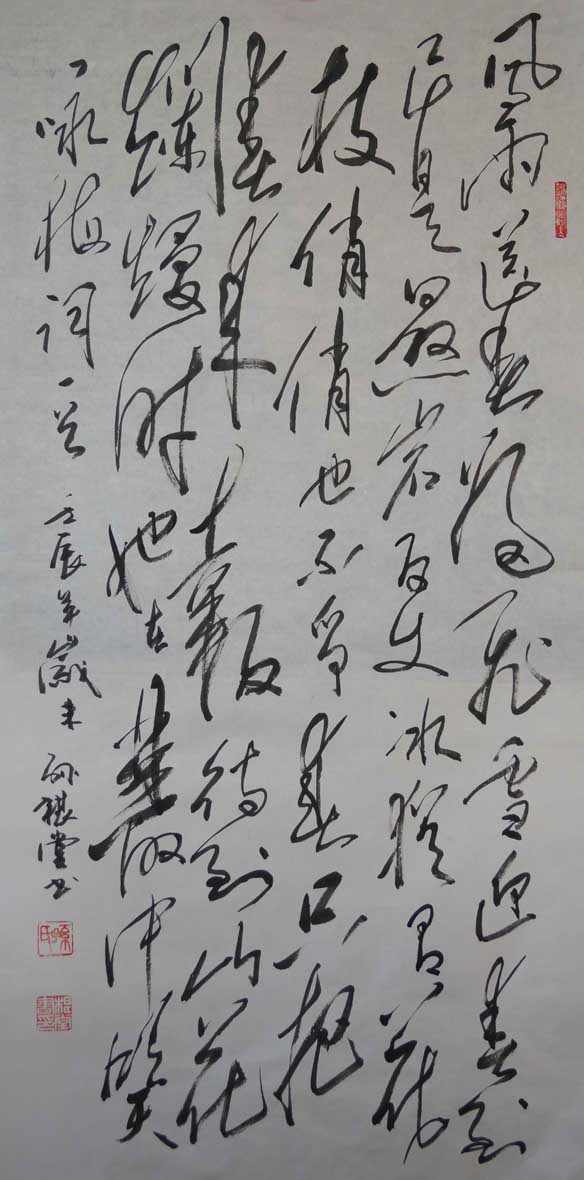 風雨送春歸飛雪迎春到
已是懸岩百丈冰猶有花
枝俏俏也不争春只把
春来報待到山花
爛熳時她在叢中笑
咏梅词一首 壬辰年歲末 孙堂书
孫氏